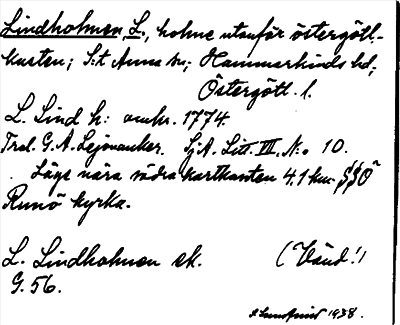 Lindholmen, L., holme utanför östergötl.-
kusten; S:t Anna sn; Hammarkinds hd;
Östergötl. l.
L. Lind h: omkr. 1774.
Trol. G. A. Lejonanker. SjA. Litt. III. N:o 10.
Läge nära södra kartkanten 4,1 km SSO
Runö kyrka.
L. Lindholmen ek.
G. 56.
(Vänd!)
1938.